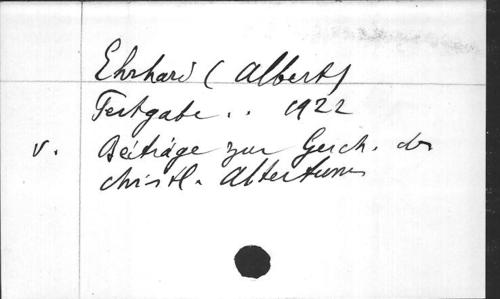 Ehrhard (Albert)
Festgabe .. 1922
v. Beiträge zur Gesch. des
christl. Altertums